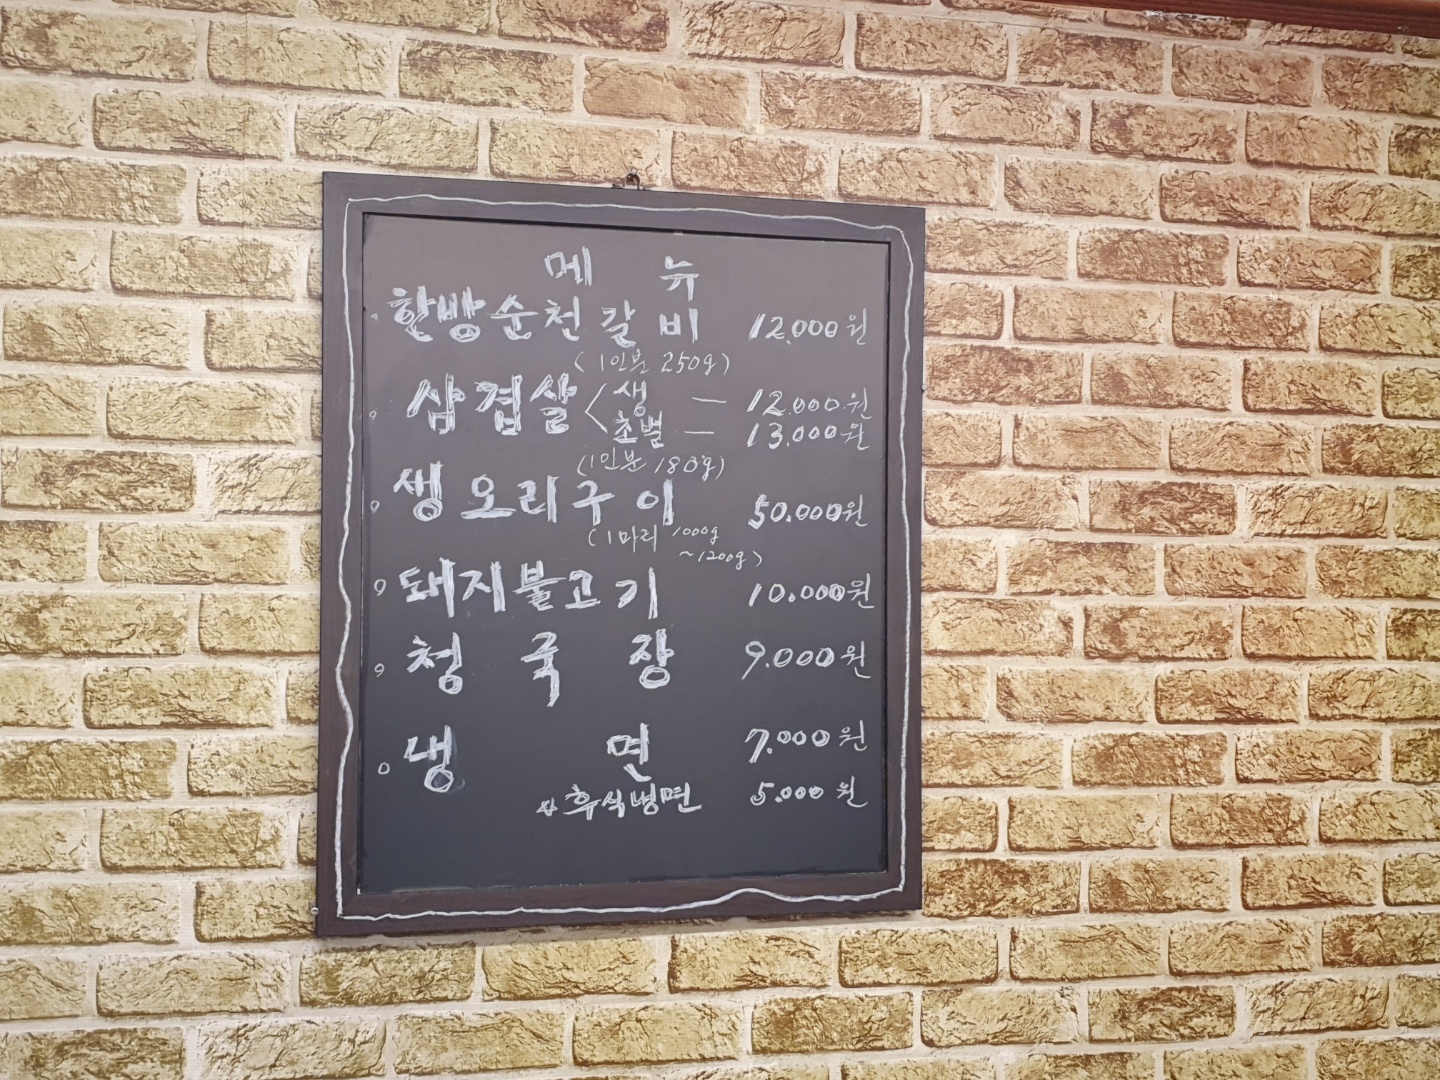 메 뉴
한방순천갈비 12,000원
(1인분 250g)
삼겹살 < 생 — 12.000원
초벌 — 13.000원
(1인분 180g)
생오리구이 50.000원
(1마리 1000g
~1200g)
돼지불고기 10.000원
청국장 9.000원
냉면 7.000원
후식냉면 5.000원